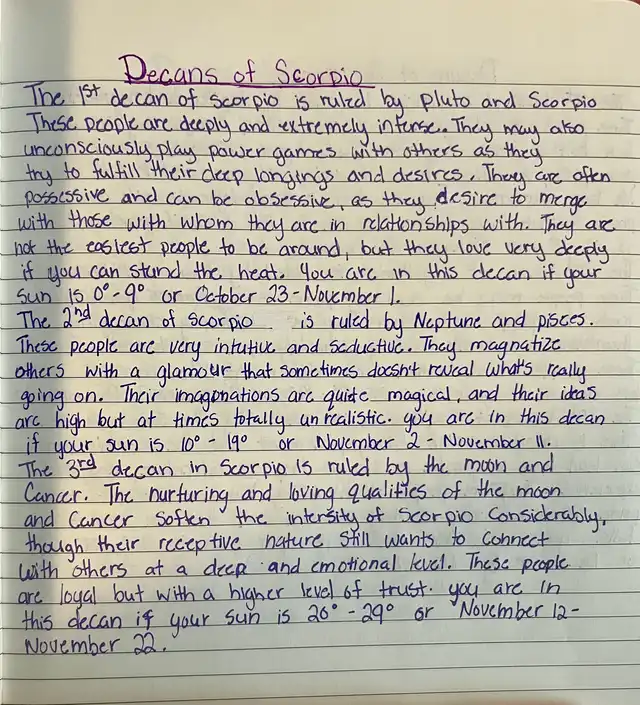 Decans of Scorpio
The 1st decan of scorpio is ruled by pluto and Scorpio
These people are deeply and extremely intense. They may also
unconsciously play power games with others as they
try to fulfill their deep longings and desires. They are often
possessive and can be obsessive, as they desire to merge
with those with whom they are in relationships with. They are
not the easiest people to be around, but they love very deeply
if you can stand the heat. you are in this decan if your
sun is 0°-9° or October 23-November 1.
The 2nd decan of scorpio is ruled by Neptune and pisces.
These people are very intutive and seductive. They magnatize
others with a glamour that sometimes doesn't reveal what's really
going on. Their imagonations are quite magical, and their ideas
are high but at times totally unrealistic. you are in this decan
if your sun is 10° - 19° or November 2 - November 11.
The 3rd decan in Scorpio is ruled by the moon and
Cancer. The nurturing and loving qualities of the moon
and Cancer soften the intersity of Scorpio considerably,
though their receptive nature still wants to connect
with others at a deep and emotional level. These people
are loyal but with a higher level of trust. you are in
this decan if your sun is 20° - 29° or November 12-
November 22.